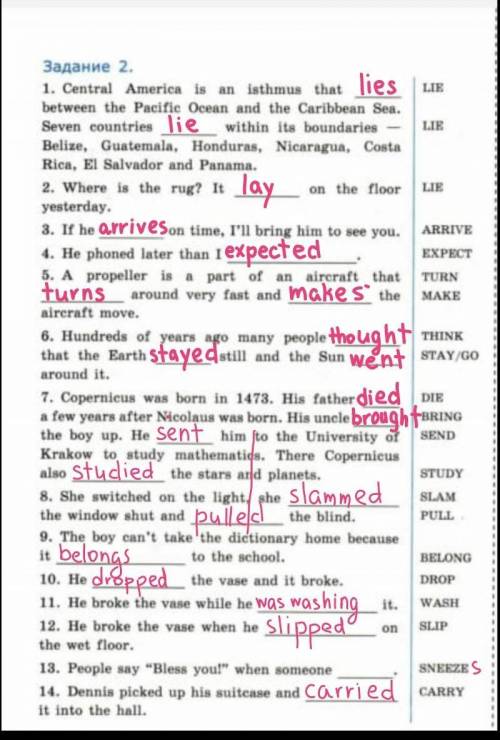 Задание 2.
1. Central America is an isthmus that lies LIE
between the Pacific Ocean and the Caribbean Sea.
Seven countries lie within its boundaries — LIE
Belize, Guatemala, Honduras, Nicaragua, Costa
Rica, El Salvador and Panama.
2. Where is the rug? It lay on the floor LIE
yesterday.
3. If he arrives on time, I'll bring him to see you. ARRIVE
4. He phoned later than I expected. EXPECT
5. A propeller is a part of an aircraft that TURN
turns around very fast and makes the MAKE
aircraft move.
6. Hundreds of years ago many people thought THINK
that the Earth stayed still and the Sun went STAY/GO
around it.
7. Copernicus was born in 1473. His father died DIE
a few years after Nicolaus was born. His uncle brought BRING
the boy up. He sent him to the University of SEND
Krakow to study mathematics. There Copernicus
also studied the stars and planets. STUDY
8. She switched on the light, she slammed SLAM
the window shut and pulled the blind. PULL
9. The boy can't take the dictionary home because
it belongs to the school. BELONG
10. He dropped the vase and it broke. DROP
11. He broke the vase while he was washing it. WASH
12. He broke the vase when he slipped on SLIP
the wet floor.
13. People say "Bless you!" when someone ______. SNEEZES
14. Dennis picked up his suitcase and carried CARRY
it into the hall.